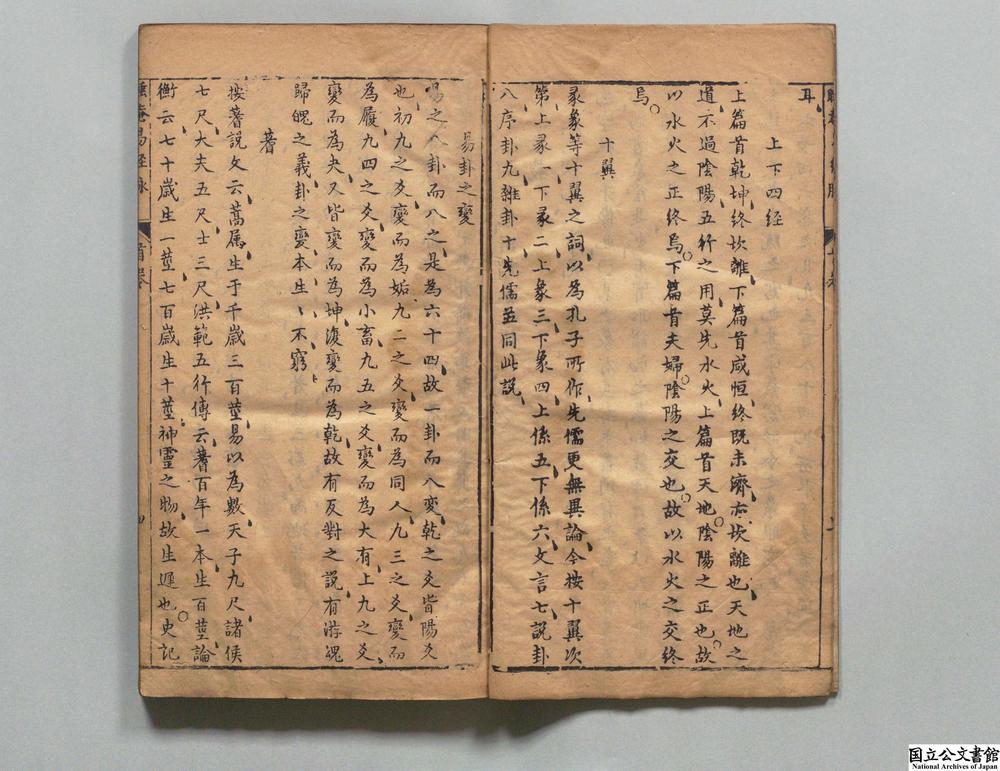 耳
上下四经
上篇首乾坤終坎離下篇首咸恒終既未濟右坎離也天地之
道不過陰陽五行之用莫先水火上篇首天地陰陽之正也故
以水火之正終焉下篇首夫婦陰陽之交也故以水火之交終
焉
十翼
彖象等十翼之詞以為孔子所作先儒更無異論今按十翼次
第上彖一下彖二上象三下象四上係五下係六文言七說卦
八序卦九雜卦十先儒並同此說
易卦之變
易之八卦而八之是為六十四故一卦而八变乾之爻皆陽爻
也初九之爻變而為姤九二之爻變而為同人九三之爻變而
為履九四之爻變而為小畜九五之爻變而為大有上九之爻
變而為夬又皆變而為坤復變而為乾故有反對之說有游魂
歸魄之義卦之變本生〻不窮
蓍
按蓍說文云蒿属生于千歲三百莖易以為數天子九尺諸侯
七尺大夫五尺士三尺洪範五行傳云蓍百年一本生百莖論
衡云七十歲生一莖七百歲生十莖神靈之物故生遲也史記
易經
首卷
四
国立公文書館
National Archives of Japan